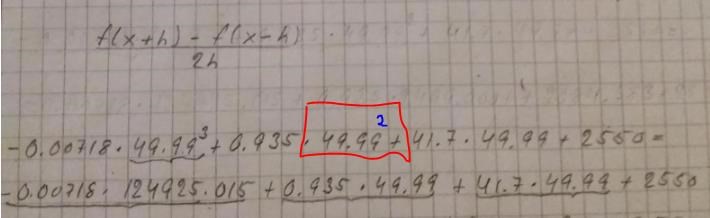 f(x+h) - f(x-h)
2h
-0.00718·49.99³+0.935·49.99²+41.7·49.99+2550=
-0.00718·124925.015+0.935·49.99+41.7·49.99+2550